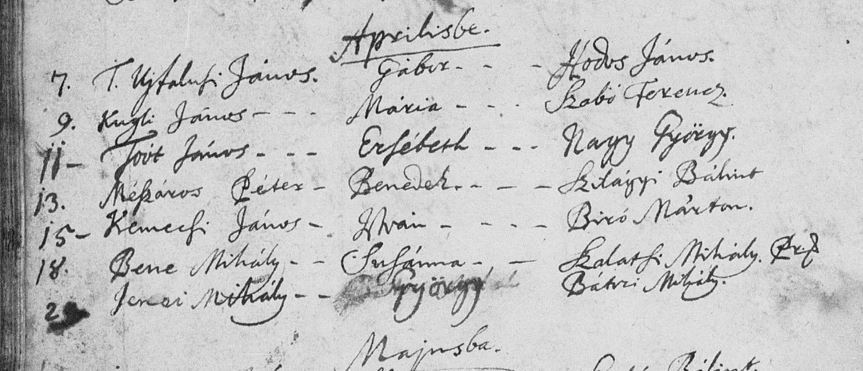 Aprilisbe.
7. T. Ujfalusi János. Gábor - - - Hodos János.
9. Kugli János - - - Mária - - - Szabó Ferencz.
11 - Toót János - - - Ersébeth - - - Nagy György.
13. Mészáros Péter - Benedek - - - Szilágyi Bálint
15 - Kemecsi János - Istvan - - - - Biró Márton.
18. Bene Mihály - - Susánna - - - Szalatsi Mihály.
Jenei Mihály - - György Bátri Mihály.
Majusba.
Bálint.